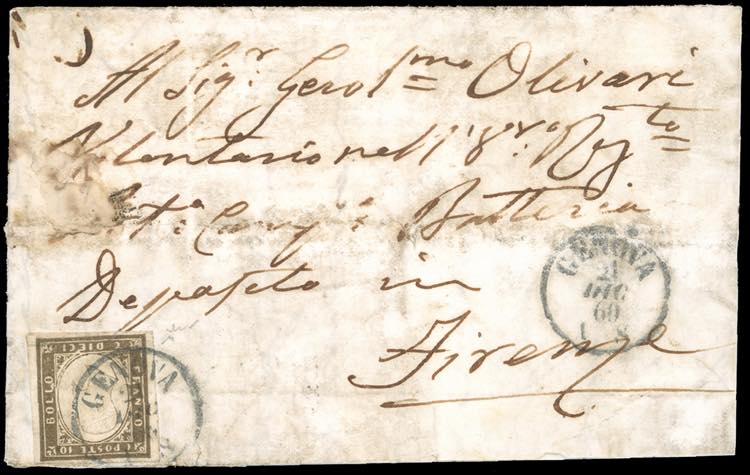 Al Sigr. Gerolmo Olivari
Volontario nell' 8vo Regto
Arta Campa Batteria
Deposito in
Firenze
GENOVA
21
DIC
60
GENOVA
C. DIECI
BOLLO
FRANCO
C. POSTE 10